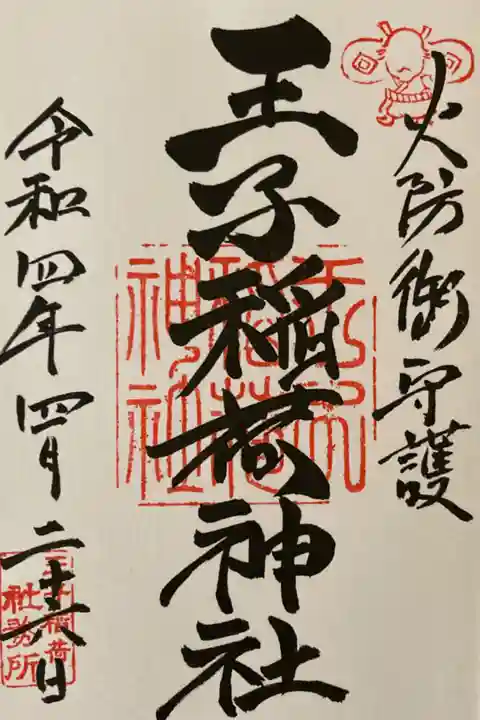 火防御守護
王子稲荷神社
令和四年四月二十六日
王子稲荷
社務所